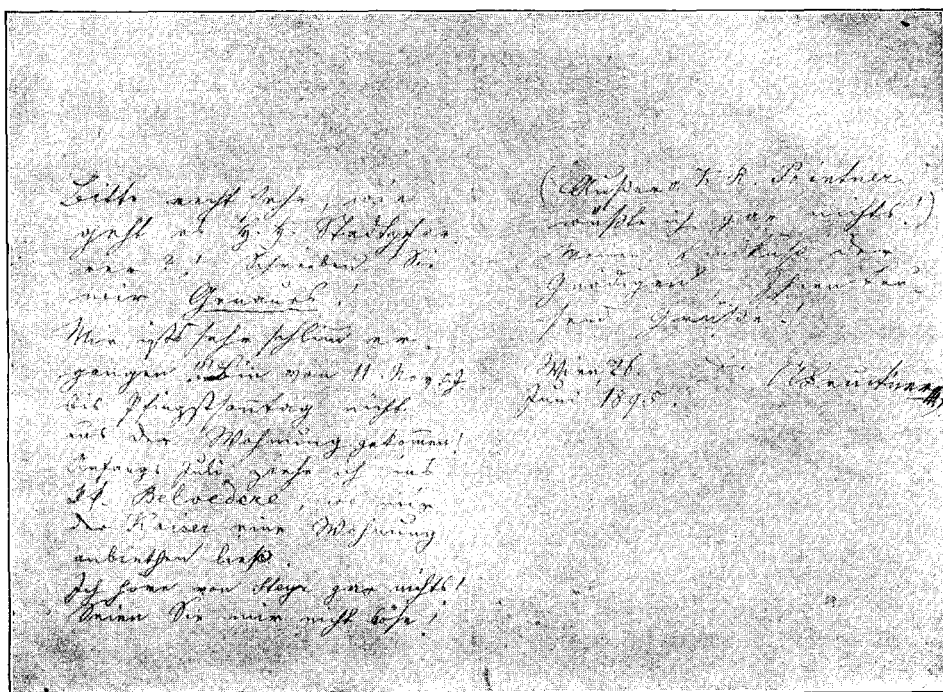 Bitte recht sehr, wie
geht es H. H. Stadtpfar-
rer?! Schreiben Sie
mir Genaues!
Mir ists sehr schlimm er-
gangen! Bin vom 11. Nov. v. J.
bis Pfingstsonntag nicht
aus der Wohnung gekommen!
Anfangs Juli ziehe ich ins
k. k. Belvedere, wo mir
der Kaiser eine Wohnung
anbiethen ließ.
Ich höre von Steyr gar nichts!
Seien Sie mir nicht böse!
(Außer K. R.
wüßte ich gar nichts!)
Meinen Handkuß der
Gnädigen, Ihnen tau-
send Grüße!
Wien, 26.
Juni 1895.
ABruckner